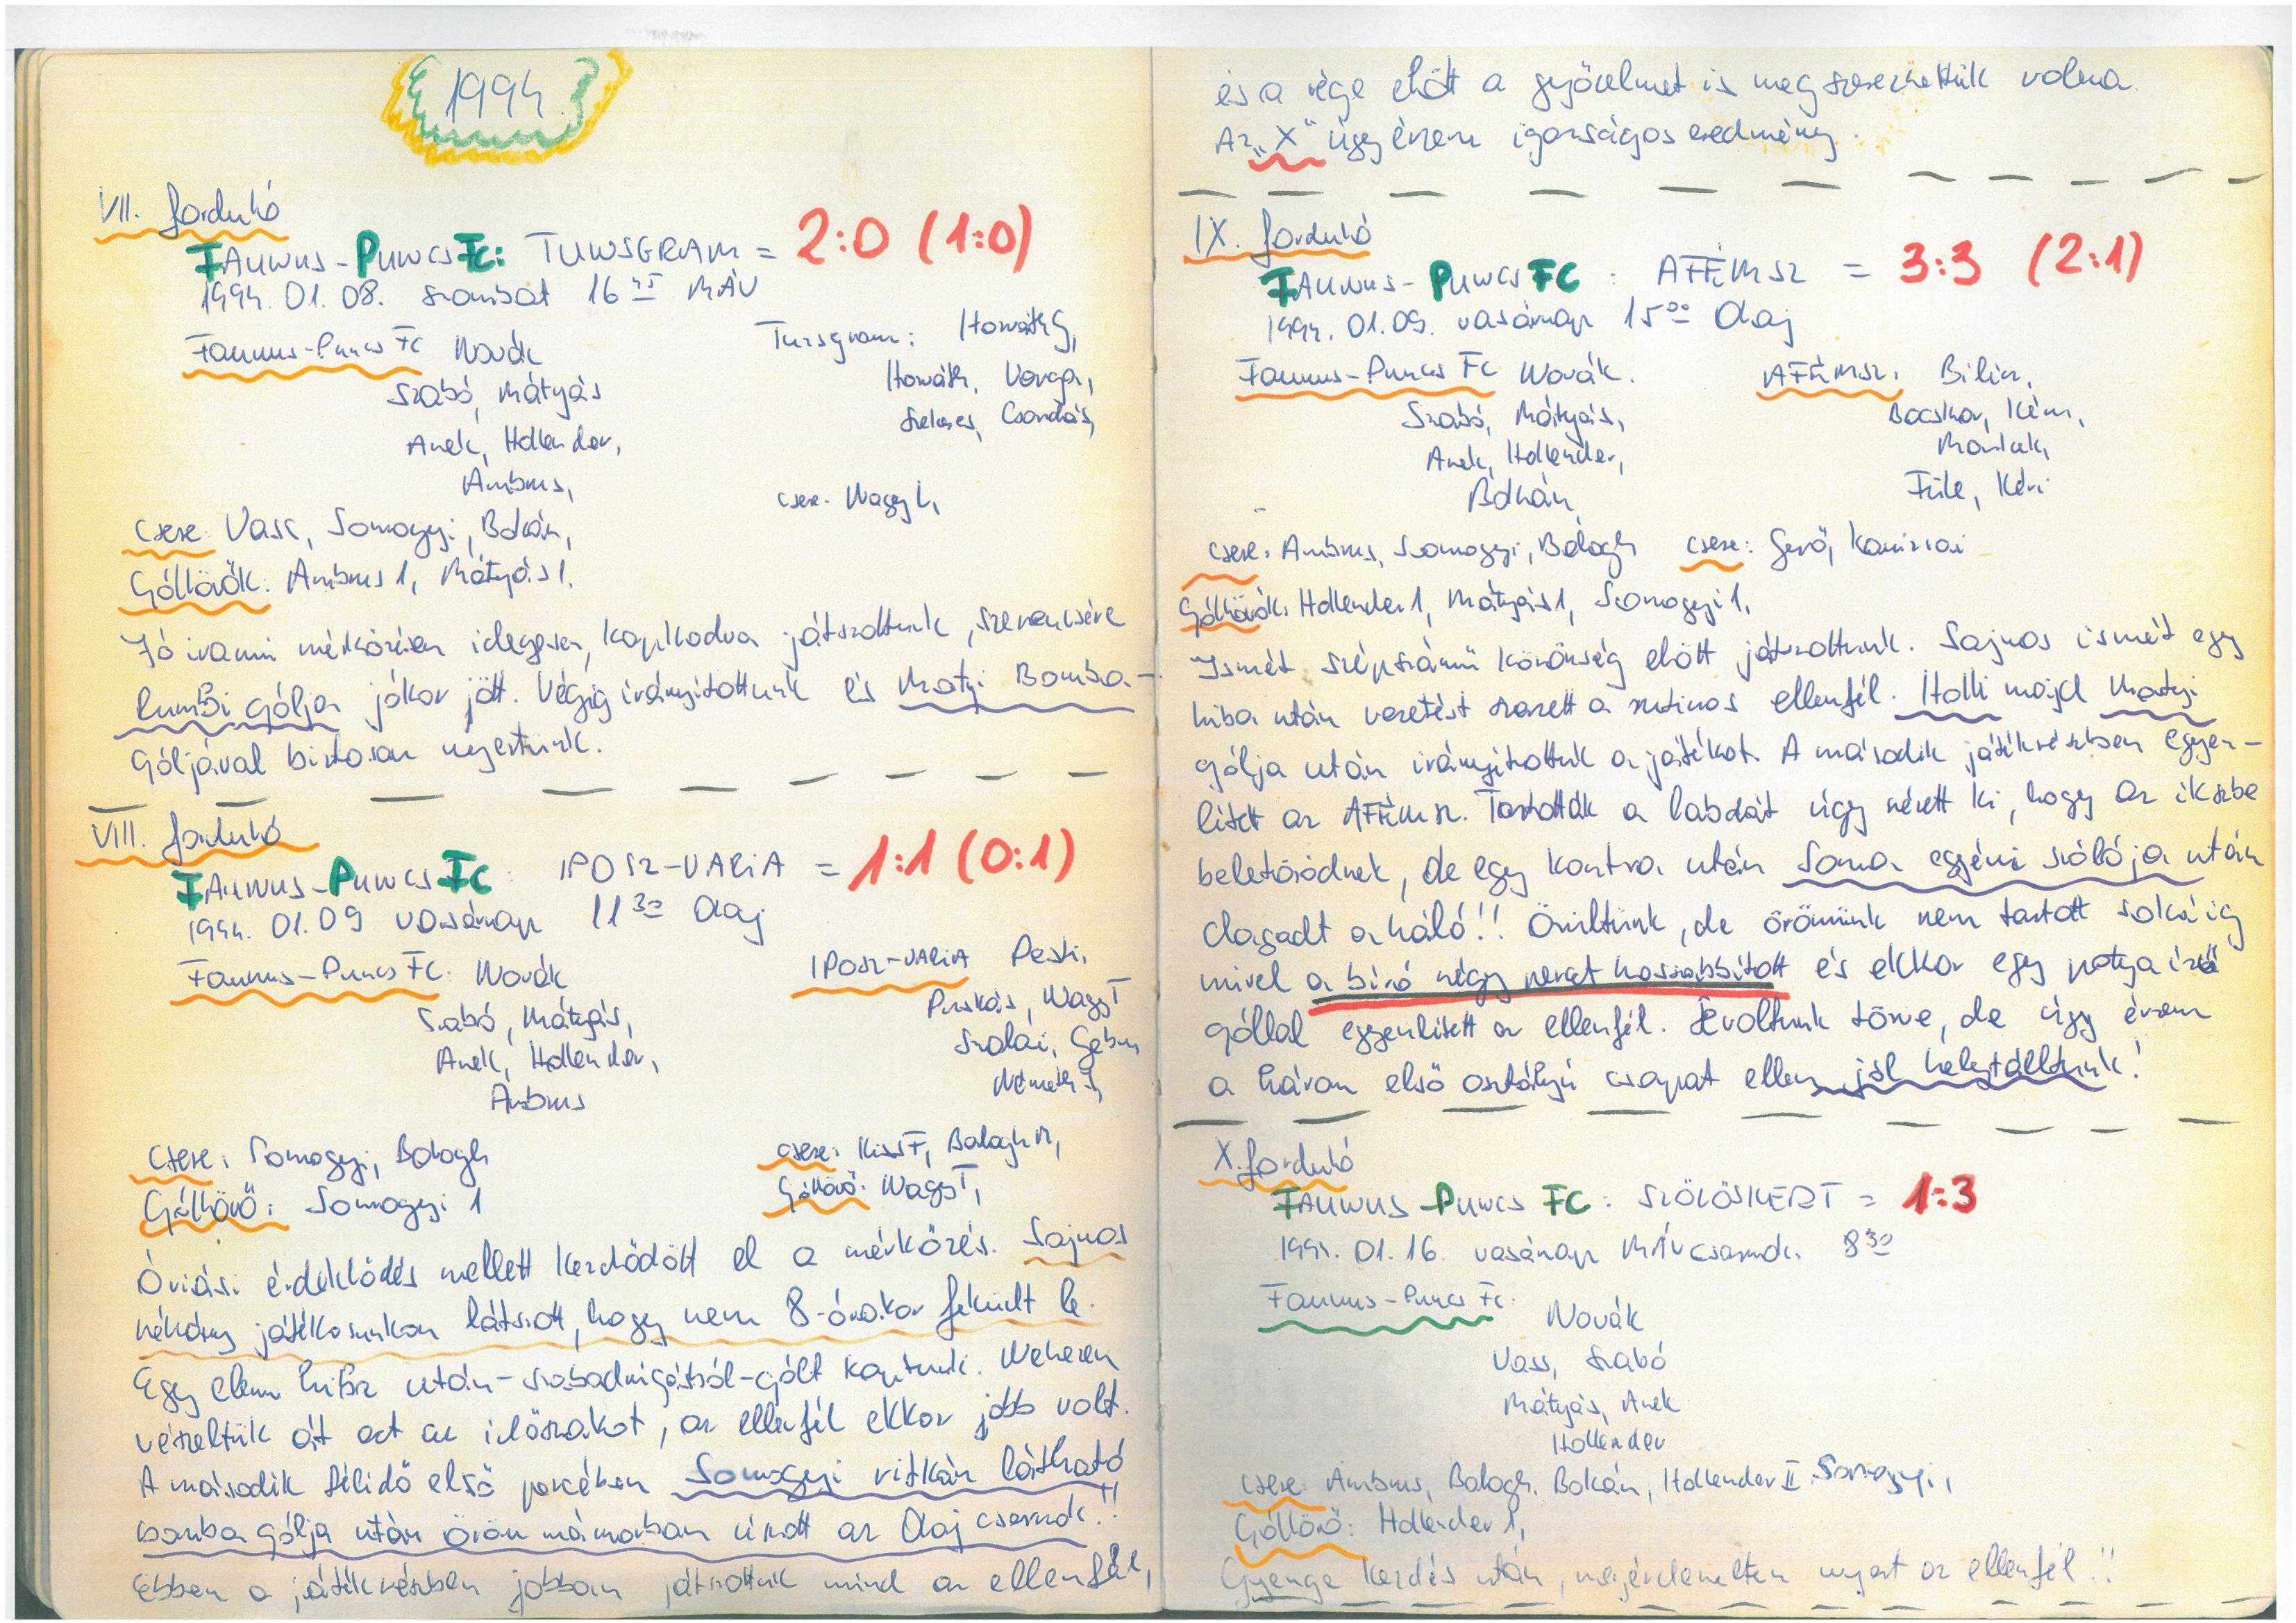 1994
VII. forduló
FAUNUS-PUNCS FC: TUNSGRAM = 2:0 (1:0)
1994. 01. 08. szombat 16 45 MÁV
Faunus-Puncs FC Novák
Szabó, Mátyás
Anek, Hollender,
Ambrus,
Tunsgram: Horváth G,
Horváth, Varga,
Szekeres, Csordás,
csere: Nagy L,
Csere: Vass, Somogyi, Bokán,
Góllövők: Ambrus 1, Mátyás 1.
Jó iramú mérkőzésen idegesen, kapkodva játszottunk, szerencsére
Rumbi gólja jókor jött. Végig irányítottunk és Matyi Bomba-
góljával biztosan nyertünk.
VIII. forduló
FAUNUS-PUNCS FC: IPOSZ-VARIA = 1:1 (0:1)
1994. 01. 09 vasárnap 11 30 Olaj
Faunus-Puncs FC: Novák
Szabó, Mátyás,
Anek, Hollender,
Ambrus
IPOSZ-VARIA Pesti,
Puskás, Nagy T
Szalai,
Németh I,
Csere: Somogyi, Balogh
Góllövő: Somogyi 1
csere: Kiss F, Balogh M,
Góllövő: Nagy T,
Óriási érdeklődés mellett kezdődött el a mérkőzés. Sajnos
néhány játékosunkon látszott, hogy nem 8-órakor feküdt le.
Egy elemi hiba után-szabadrúgásból-gólt kaptunk. Nehezen
vészeltük át ezt az időszakot, az ellenfél ekkor jobb volt.
A második félidő első percében Somogyi ritkán látható
bomba gólja után öröm mámorban úszott az Olaj csarnok!!
Ebben a játékrészben jobban játszottunk mind az ellenfél,
és a vége előtt a győzelmet is megszerezhettük volna.
Az "X" úgy érzem igazságos eredmény.
IX. forduló
FAUNUS-PUNCS FC : AFÉMSZ = 3:3 (2:1)
1994. 01. 09. vasárnap 15 00 Olaj
Faunus-Puncs FC Novák.
Szabó, Mátyás,
Anek, Hollender,
Bokán
AFÉMSZ: Bilicz,
Bocskor, Kém,
Füle, Kéri
csere: Ambrus, Somogyi, Balogh csere: Gerő, Kanizsai
Góllövők: Hollender 1, Mátyás 1, Somogyi 1,
Ismét szépszámú közönség előtt játszottunk. Sajnos ismét egy
hiba után vezetést szerzett a rutinos ellenfél. Holli majd Matyi
gólja után irányítottuk a játékot. A második játékrészben egyen-
lített az AFÉMSZ. Tartották a labdát úgy nézett ki, hogy az ikszbe
beletörődnek, de egy kontra után Soma egyéni szólója után
dagadt a háló!! Örültünk, de örömünk nem tartott sokáig
mivel a bíró négy percet hosszabbított és ekkor egy potya ízű
góllal egyenlített az ellenfél. Le voltunk törve, de úgy érzem
a három első osztályú csapat ellen jól helytálltunk!
X. forduló
FAUNUS-PUNCS FC : SZŐLŐSKERT = 1:3
1994. 01. 16. vasárnap MÁV csarnok. 8 30
Faunus-Puncs FC:
Novák
Vass, Szabó
Mátyás, Anek
Hollender
csere: Ambrus, Balogh, Bokán, Hollender II. Somogyi,
Góllövő: Hollender 1,
Gyenge kezdés után, megérdemelten nyert az ellenfél!!